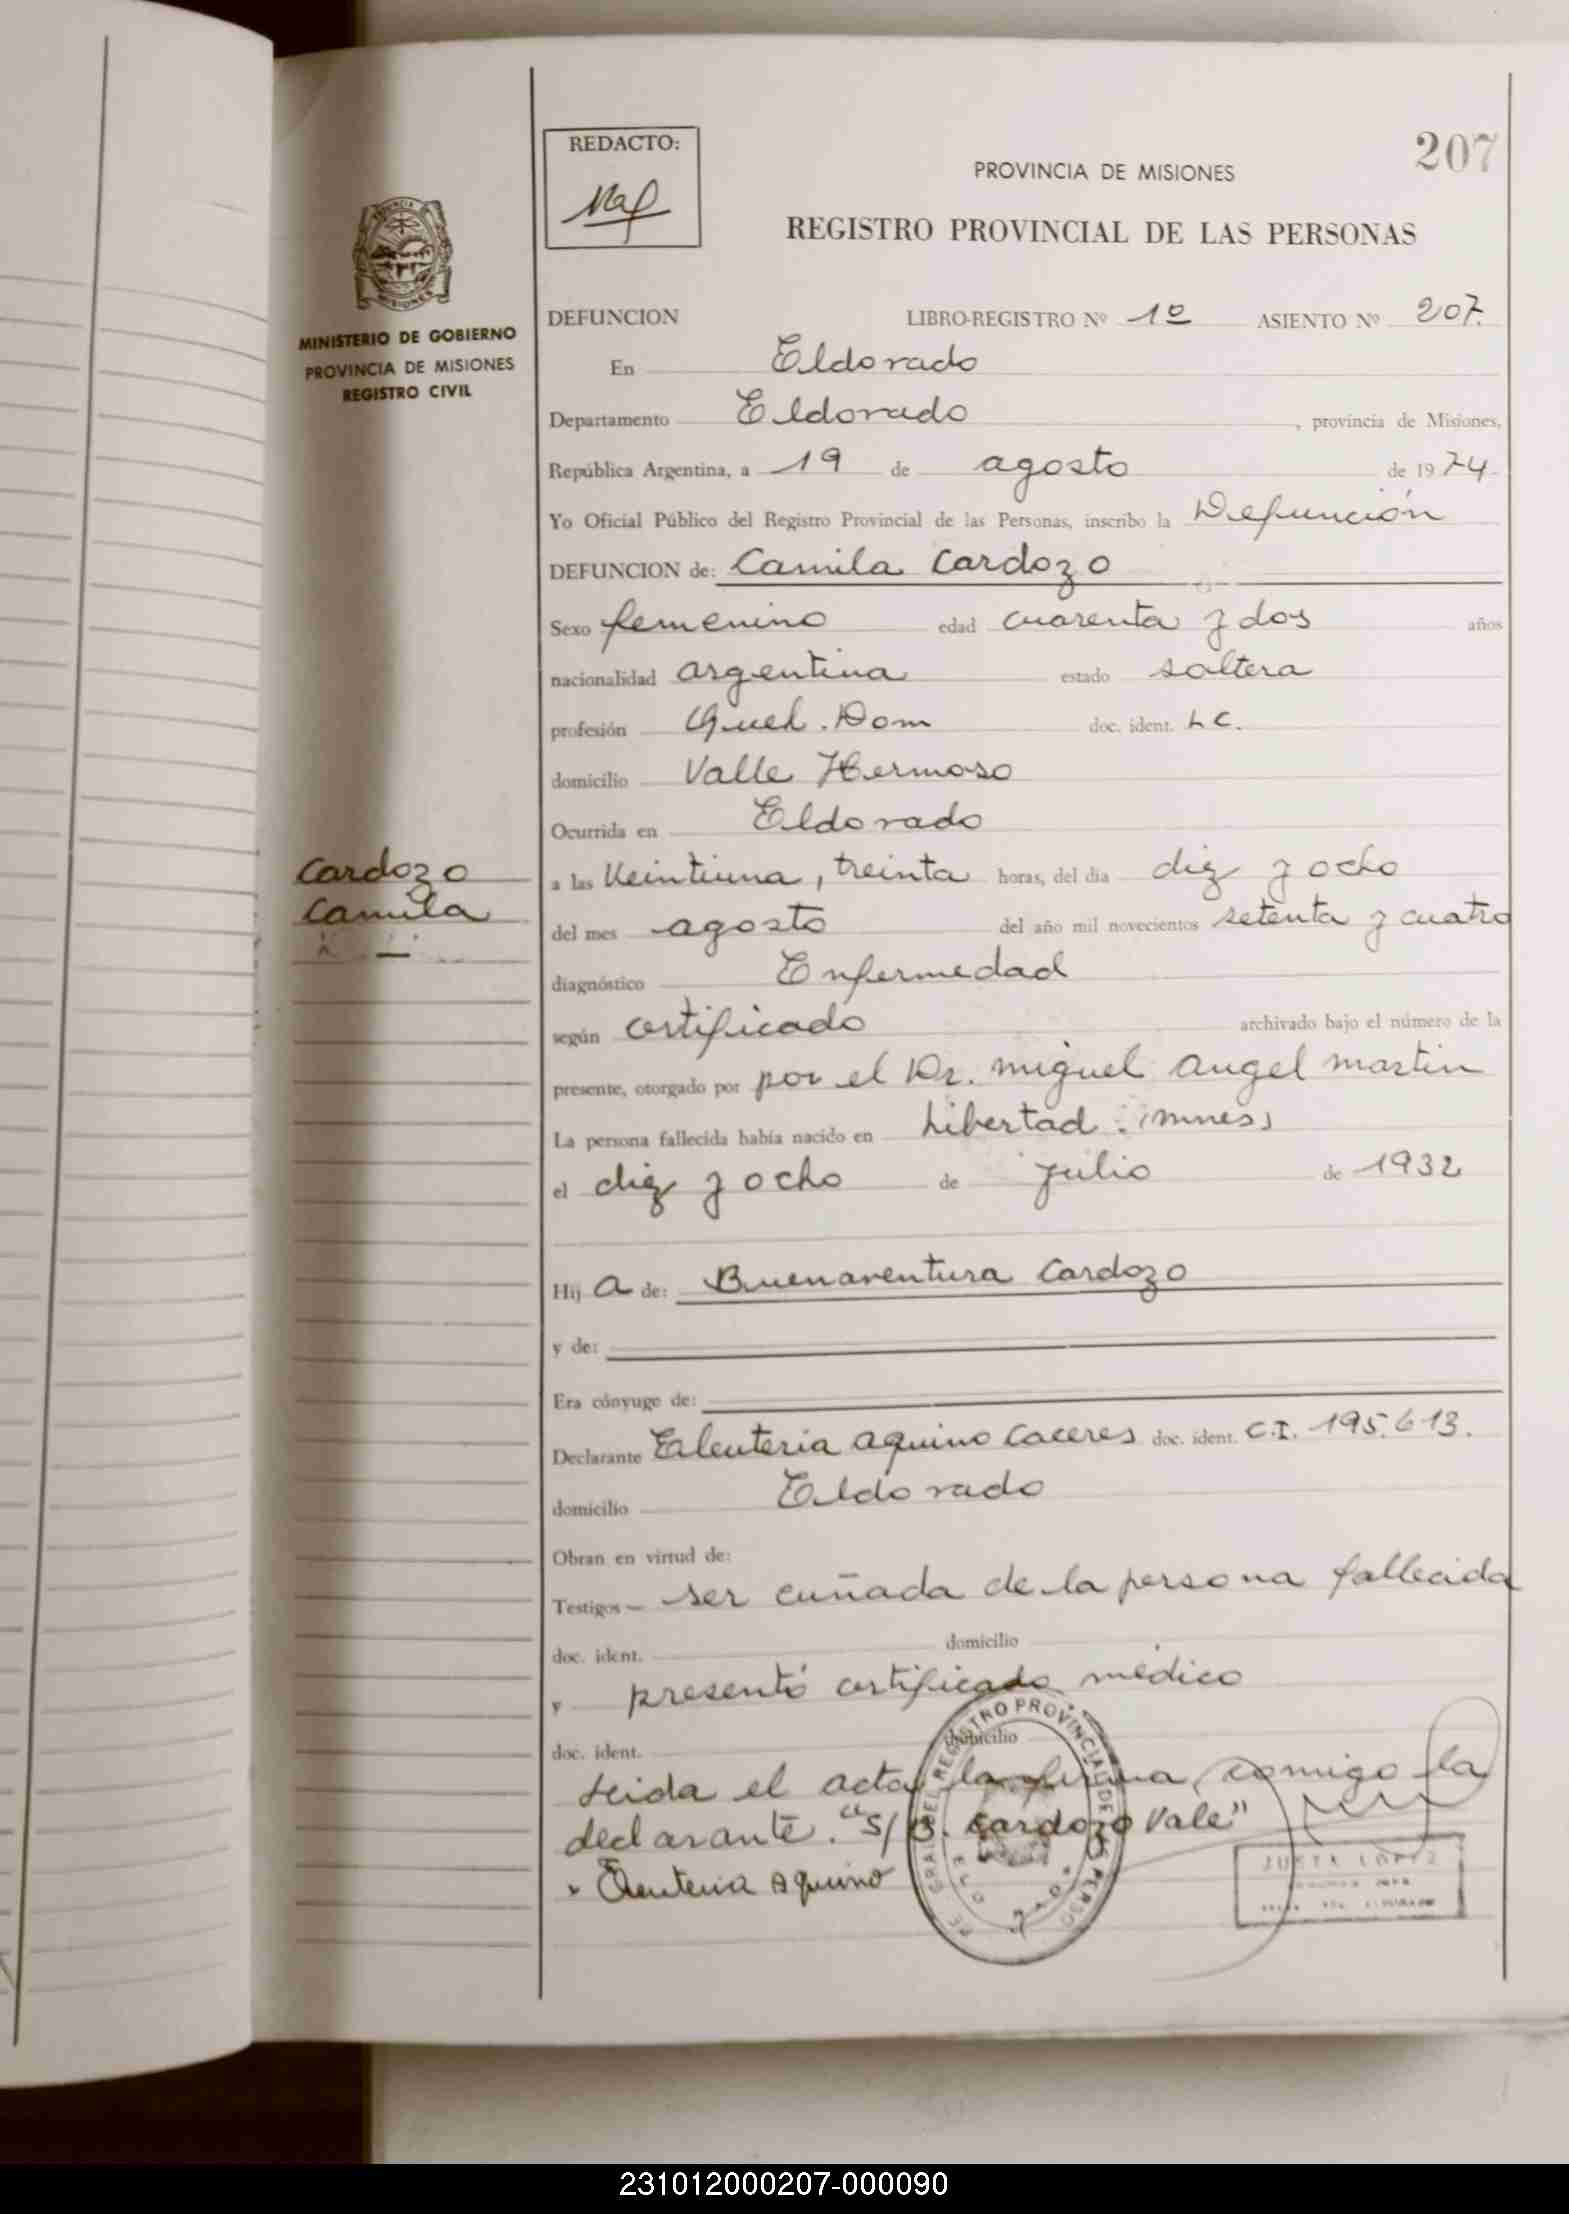 207
REDACTO:
PROVINCIA DE MISIONES
REGISTRO PROVINCIAL DE LAS PERSONAS
MINISTERIO DE GOBIERNO
PROVINCIA DE MISIONES
REGISTRO CIVIL
DEFUNCION LIBRO-REGISTRO Nº 1º ASIENTO Nº 207.
En Eldorado
Departamento Eldorado, provincia de Misiones,
República Argentina, a 19 de agosto de 1974
Yo Oficial Público del Registro Provincial de las Personas, inscribo la Defunción
DEFUNCION de: Camila Cardozo
Sexo femenino edad cuarenta y dos años
nacionalidad argentina estado soltera
profesión Queh. Dom doc. ident. L C.
domicilio Valle Hermoso
Ocurrida en Eldorado
Cardozo
Camila
a las Veintiuna, treinta horas, del día diez y ocho
del mes agosto del año mil novecientos setenta y cuatro
diagnóstico Enfermedad
según certificado archivado bajo el número de la
presente, otorgado por por el Dr. Miguel Angel Martin
La persona fallecida había nacido en Libertad. (mnes)
el diez y ocho de julio de 1932
Hij a de: Buenaventura Cardozo
y de:
Era cónyuge de:
Declarante Eleuteria Aquino Caceres doc. ident. C.I. 195.613.
domicilio Eldorado
Obran en virtud de:
Testigos ser cuñada de la persona fallecida
doc. ident. domicilio
y presentó certificado médico
doc. ident. domicilio
Leida el acta, la firma, comigo la
declarante. "S/B. Cardozo Vale"
Eleuteria Aquino
REGISTRO PROVINCIAL DE
JUSTA LOPEZ
231012000207-000090